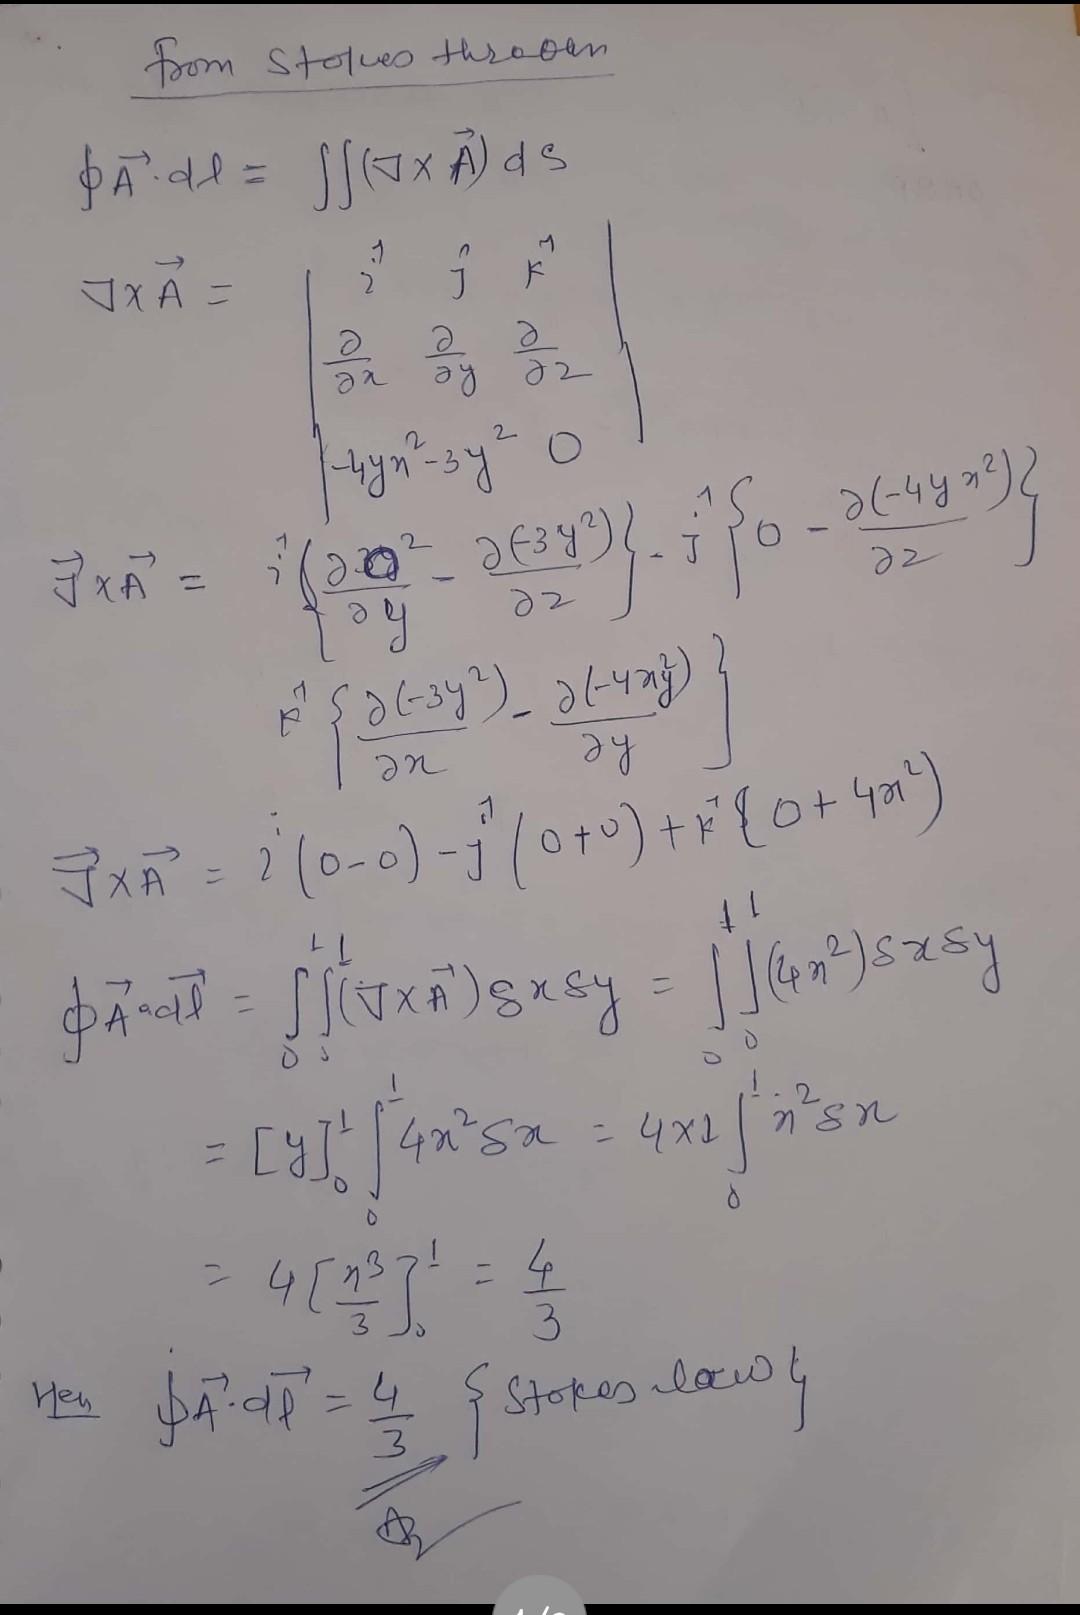 from stokes throoem
∮A⃗·dl = ∬(∇×A⃗) ds
∇×A⃗ = | î ĵ k̂
∂/∂x ∂/∂y ∂/∂z
-4yx² -3y² 0 |
∇⃗×A⃗ = î{∂0²/∂y - ∂(-3y²)/∂z} - ĵ{0 - ∂(-4yx²)/∂z}
k̂{∂(-3y²)/∂x - ∂(-4x²y)/∂y}
∇⃗×A⃗ = i(0-0) - ĵ(0+0) + k̂{0+4x²)
∮A⃗·dl⃗ = ∫₀¹∫₀¹(∇×A⃗)δxδy = ∫₀¹∫₀¹(4x²)δxδy
= [y]₀¹ ∫₀¹ 4x²δx = 4×1 ∫₀¹ x²δx
= 4[x³/3]₀¹ = 4/3
Hen ∮A⃗·dl⃗ = 4/3 {Stokes law}